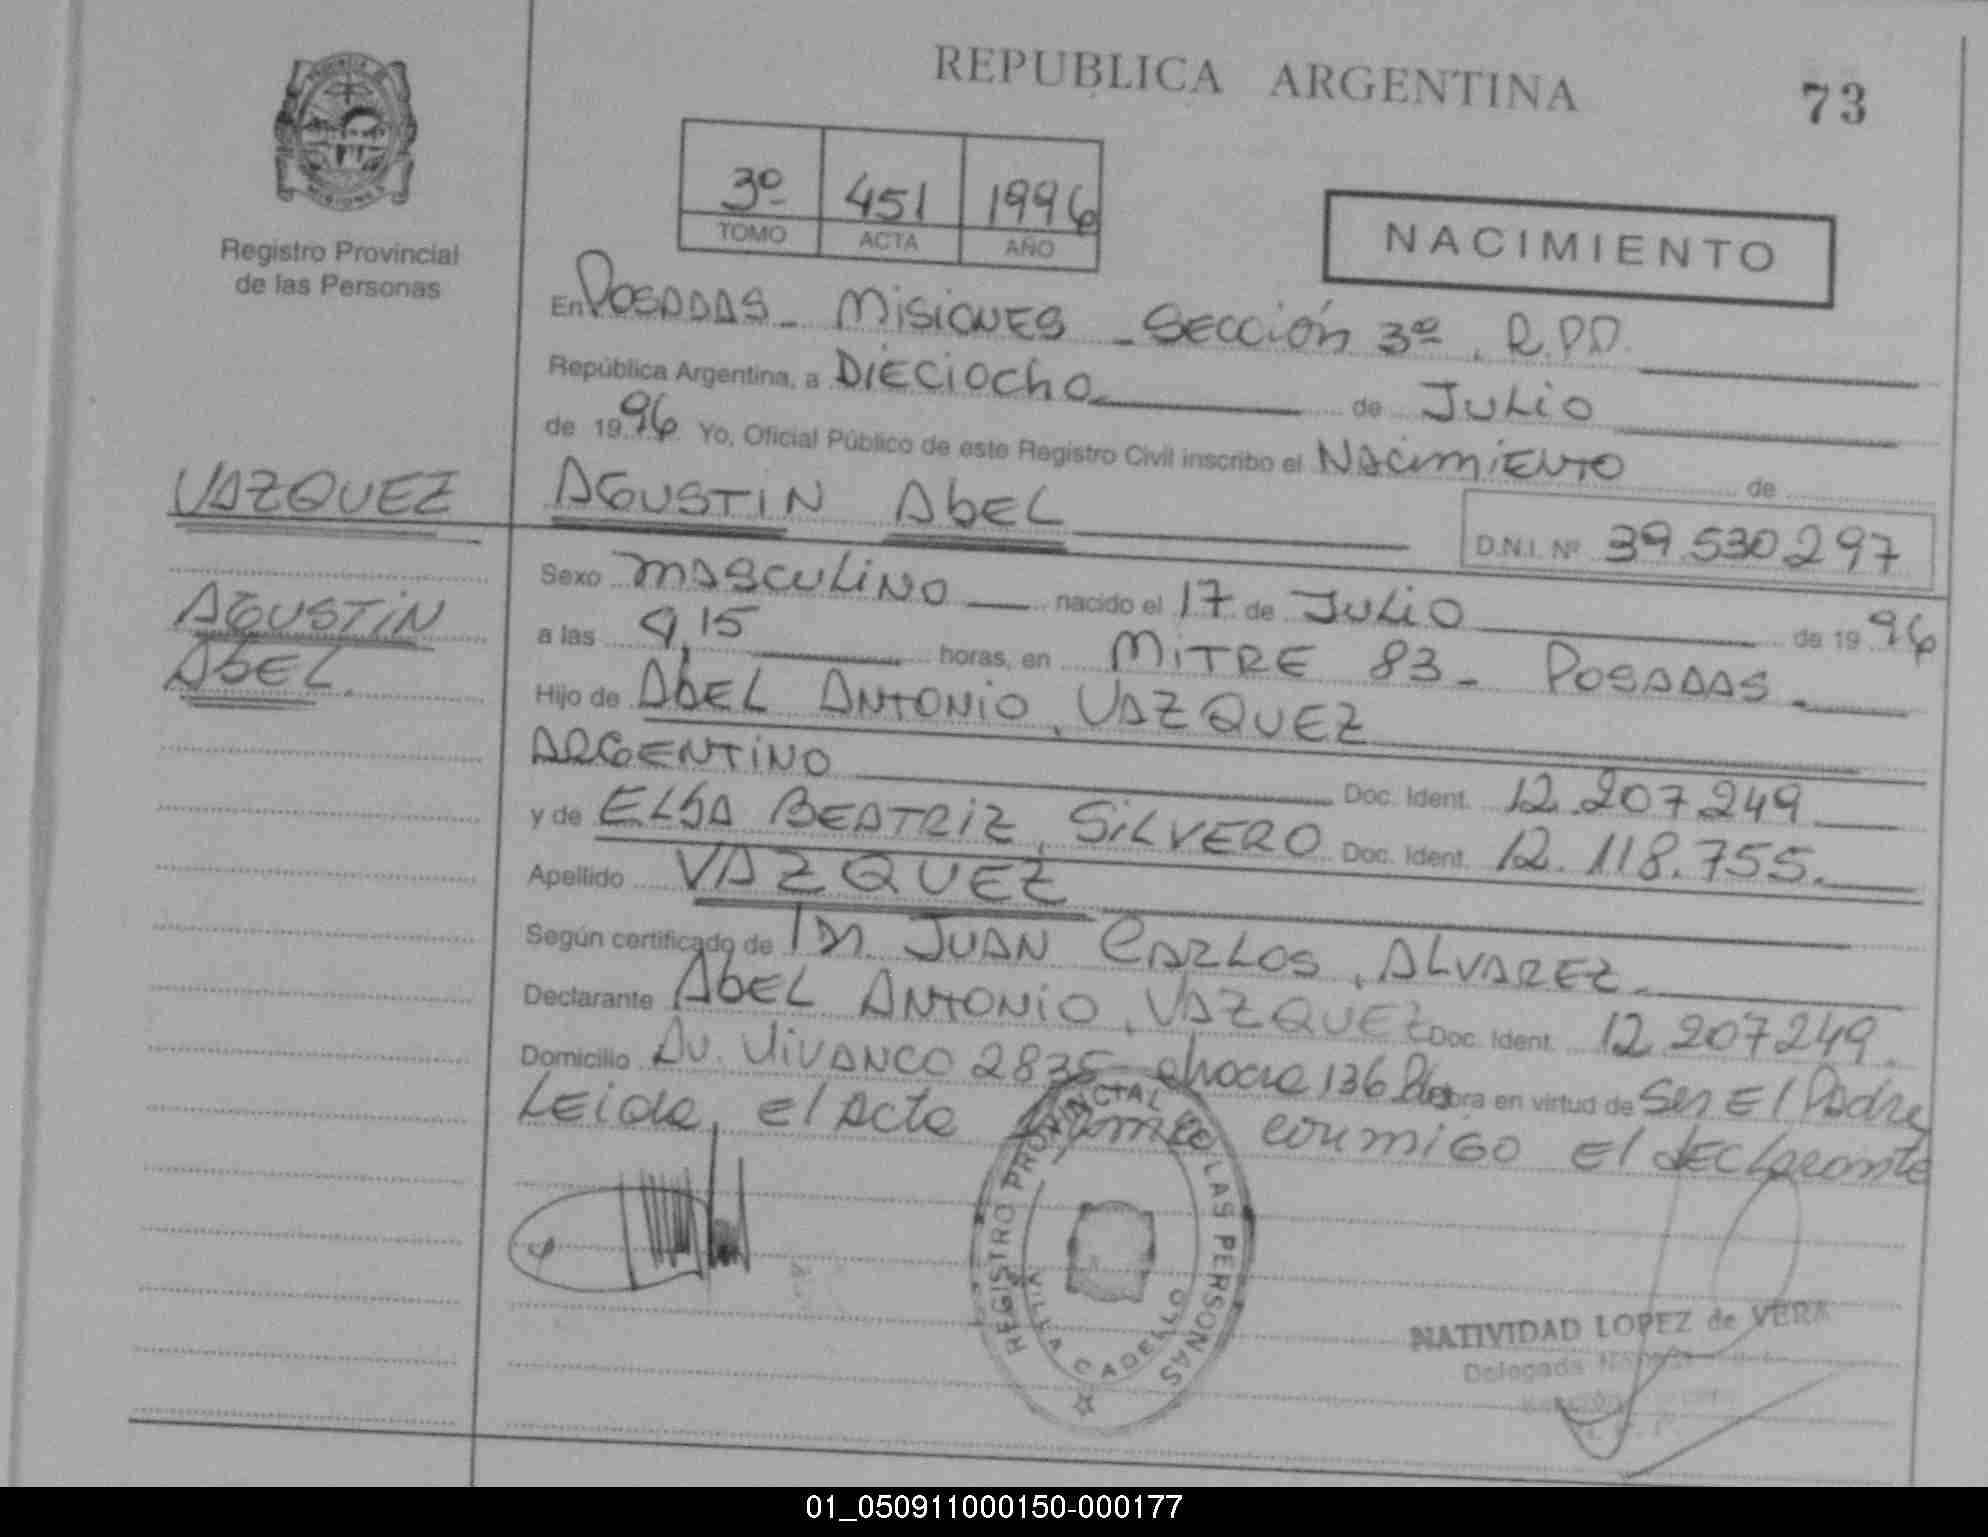 REPUBLICA ARGENTINA
73
PROVINCIA DE
MISIONES
Registro Provincial
de las Personas
3º 451 1996
TOMO ACTA AÑO
NACIMIENTO
En POSADAS - MISIONES - SECCIÓN 3º, R.P.P.
República Argentina, a DIECIOCHO de JULIO
de 1996 Yo, Oficial Público de este Registro Civil inscribo el NACIMIENTO de
VAZQUEZ
AGUSTIN ABEL
D.N.I. Nº 39.530.297
AGUSTIN
ABEL.
Sexo MASCULINO nacido el 17 de JULIO de 1996
a las 9,15 horas, en MITRE 83 - POSADAS -
Hijo de ABEL ANTONIO, VAZQUEZ
ARGENTINO Doc. Ident. 12.207.249
y de ELSA BEATRIZ, SILVERO Doc. Ident. 12.118.755.
Apellido VAZQUEZ
Según certificado de DR. JUAN CARLOS, ALVAREZ -
Declarante ABEL ANTONIO, VAZQUEZ Doc. Ident. 12.207.249.
Domicilio AV. VIVANCO 2835 - chacra 136 obra en virtud de SER El Padre
Leida, el Acta conmigo El dEClarante
REGISTRO PROVINCIAL DE LAS PERSONAS
VILLA CADELLO
NATIVIDAD LOPEZ de VERA
Delegada
01_050911000150-000177